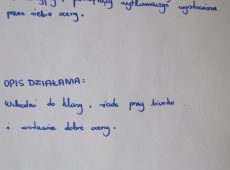 wytłumaczyć wystawione
przez siebie oceny.
OPIS DZIAŁANIA:
Wchodzi do klasy, siada przy biurku
i wystawia dobre oceny.